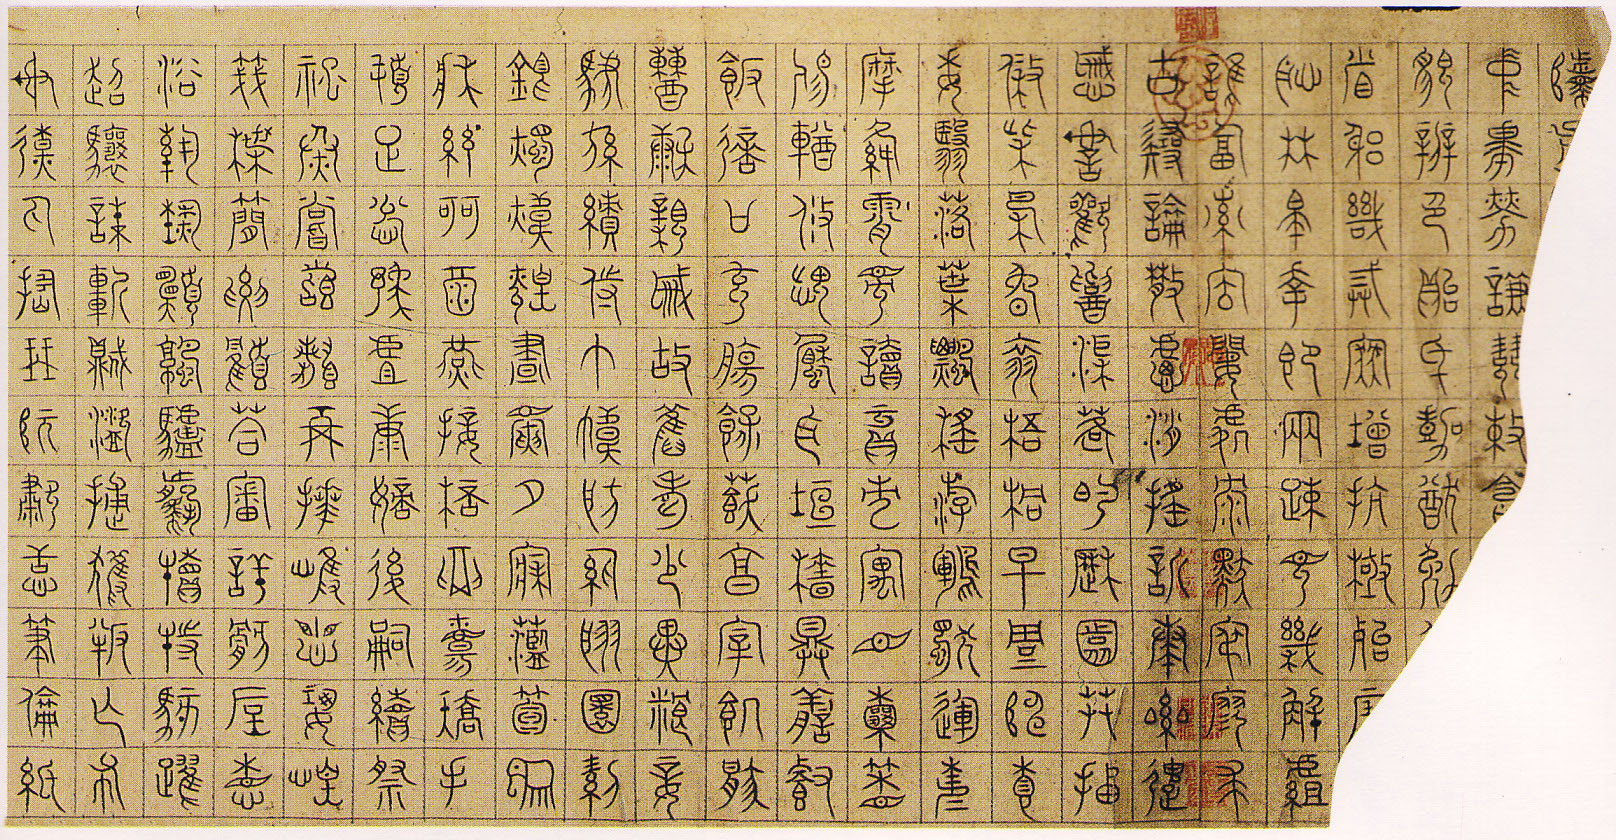 陟
中庸勞謙謹敕聆
貌辨色貽厥嘉猷勉
省躬譏誡寵增抗極殆辱
恥林皋幸即兩疏見機解組
誰逼索居閒處沉默寂寥求
古尋論散慮逍遙欣奏累遣
慼謝歡招渠荷的歷園莽抽
條枇杷晚翠梧桐早凋陳根
委翳落葉飄颻游鵾獨運凌
摩絳霄耽讀翫市寓目囊箱
易輶攸畏屬耳垣牆具膳餐
飯適口充腸飽飫烹宰飢厭
糟糠親戚故舊老少異糧妾
御績紡侍巾帷房紈扇圓潔
銀燭煒煌晝眠夕寐藍筍象
床絃歌酒讌接杯舉觴矯手
頓足悅豫且康嫡後嗣續祭
祀蒸嘗稽顙再拜悚懼恐惶
牋牒簡要顧答審詳骸垢想
浴執熱願涼驢騾犢特駭躍
超驤誅斬賊盜捕獲叛亡布
射遼丸嵇琴阮嘯恬筆倫紙